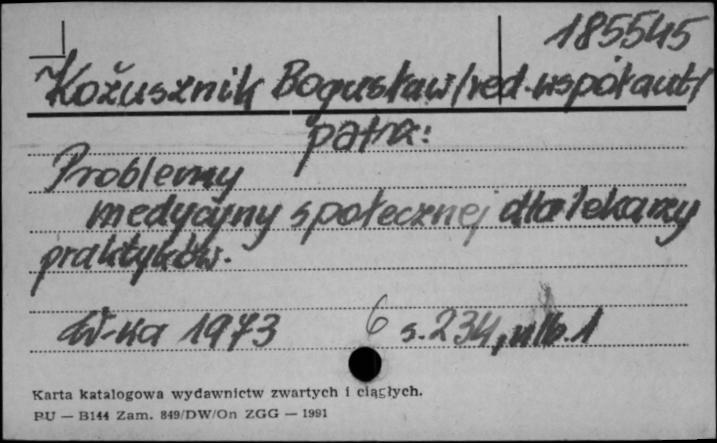 185545
Kożusznik Bogusław /red. współaut/
patrz:
Problemy
medycyny społecznej dla lekarzy
praktyków.
W-wa 1973 6 s. 234, nlb. 1
Karta katalogowa wydawnictw zwartych i ciągłych.
PU — B144 Zam. 849/DW/On ZGG — 1991